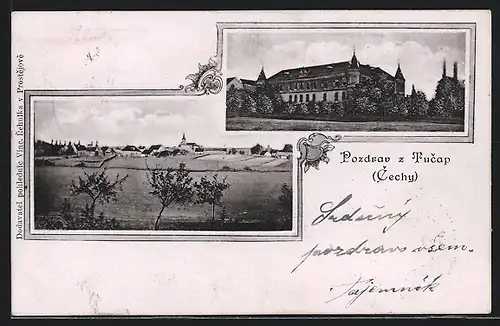 Pozdrav z Tučap
(Čechy)
Srdečný
pozdrav všem.
tajemník
Dodavatel pohlednic Vinc. Cehulka v Prostějově